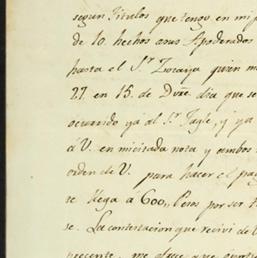 segun Titulos que tengo en mi p
de 10. hechos a sus Apoderados
hasta el S.r Zocaya quien m
27. en 15. de Dvre. dia que se
ocurrido ya al S.r Tagle, y ya
á V. en micitada nota y ambos
orden de V. para hacer el pag
se llega a 600, Pesos por ser
se. La contestacion que recivi de
me